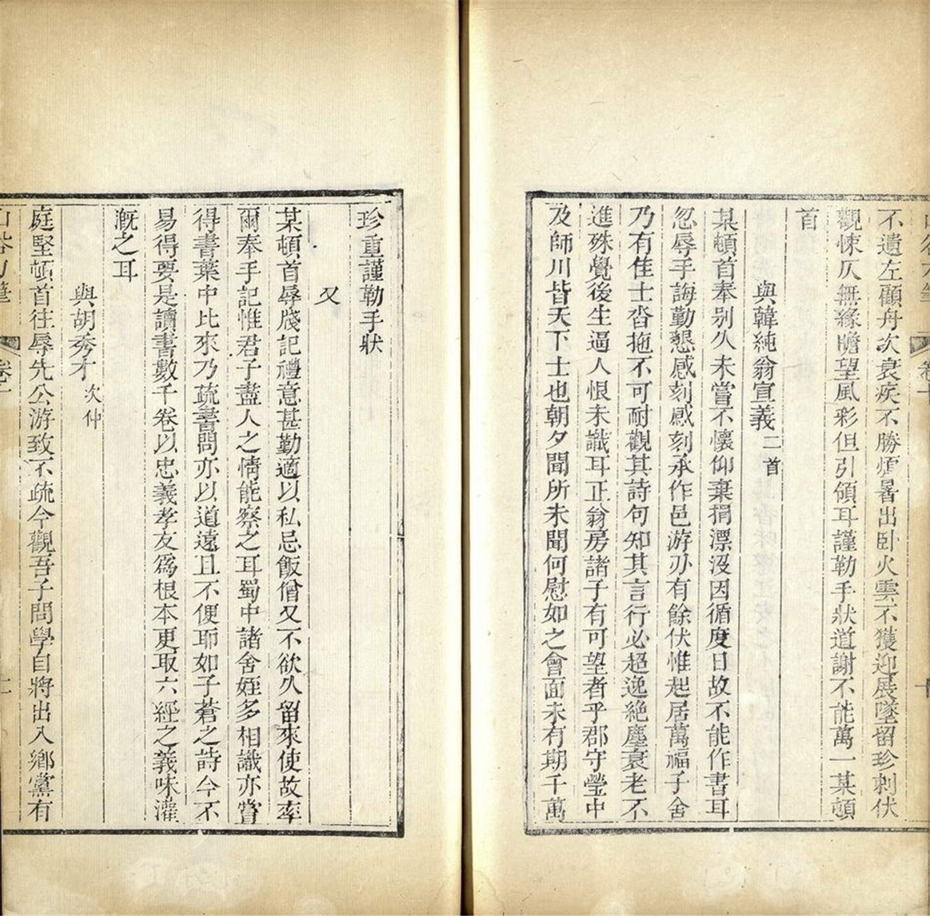 不遺左顧舟次衰疾不勝煩暑出臥火雲不獲迎展墜留珍刺伏
觀悚仄無緣瞻望風彩但引領耳謹勒手狀道謝不能萬一某頓
首
與韓純翁宣義二首
某頓首奉别久未嘗不懷仰棄捐漂沒因循度日故不能作書耳
忽辱手誨勤懇感刻感刻承作邑游刃有餘伏惟起居萬福子舍
乃有佳士沓拖不可耐觀其詩句知其言行必超逸絶塵衰老不
進殊覺後生逼人恨未識耳正翁房諸子有可望者乎郡守瑩中
及師川皆天下士也朝夕聞所未聞何慰如之會面未有期千萬
珍重謹勒手狀
又
某頓首辱牋記禮意甚勤適以私忌飯僧又不欲久留來使故率
爾奉手記惟君子盡人之情能察之耳蜀中諸舍姪多相識亦嘗
得書葉中比來乃疏書問亦以道遠且不便耶如子蒼之詩今不
易得要是讀書數千卷以忠義孝友爲根本更取六經之義味灌
漑之耳
與胡秀才次仲
庭堅頓首往辱先公游致不疏今觀吾子問學自將出入鄉黨有